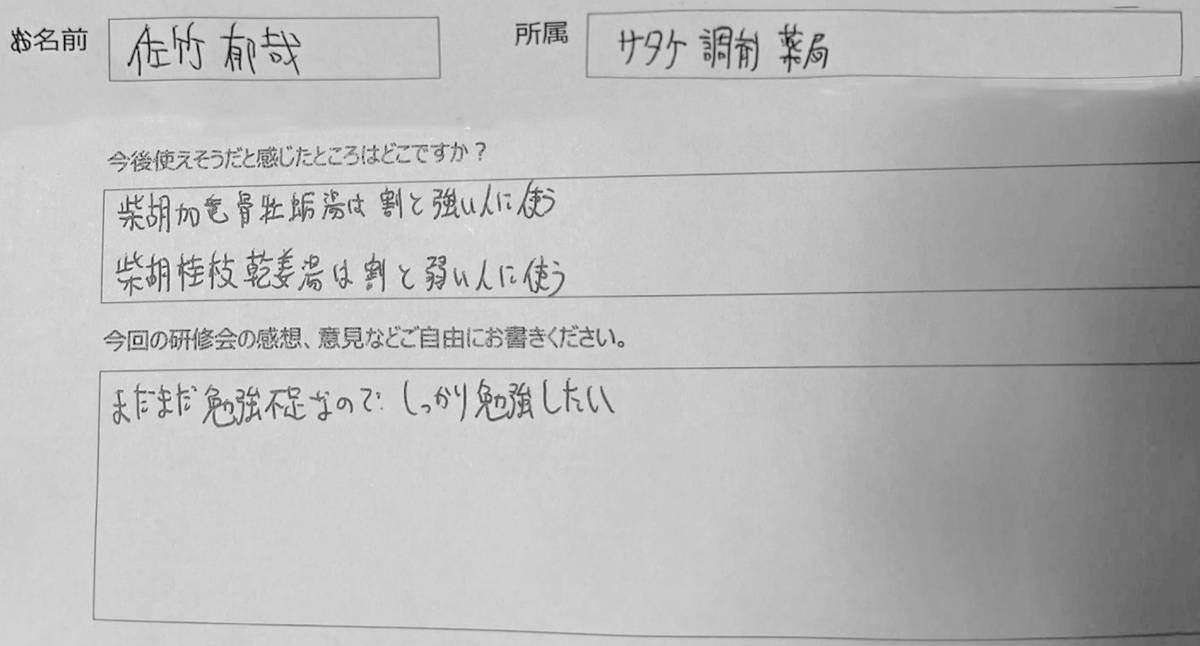 お名前 佐竹 郁哉 所属 サタケ 調剤 薬局
今後使えそうだと感じたところはどこですか？
柴胡加竜骨牡蛎湯は 割と 強い人に使う
柴胡桂枝乾姜湯は 割と 弱い人に使う
今回の研修会の感想、意見などご自由にお書きください。
まだまだ勉強不足なので しっかり勉強したい